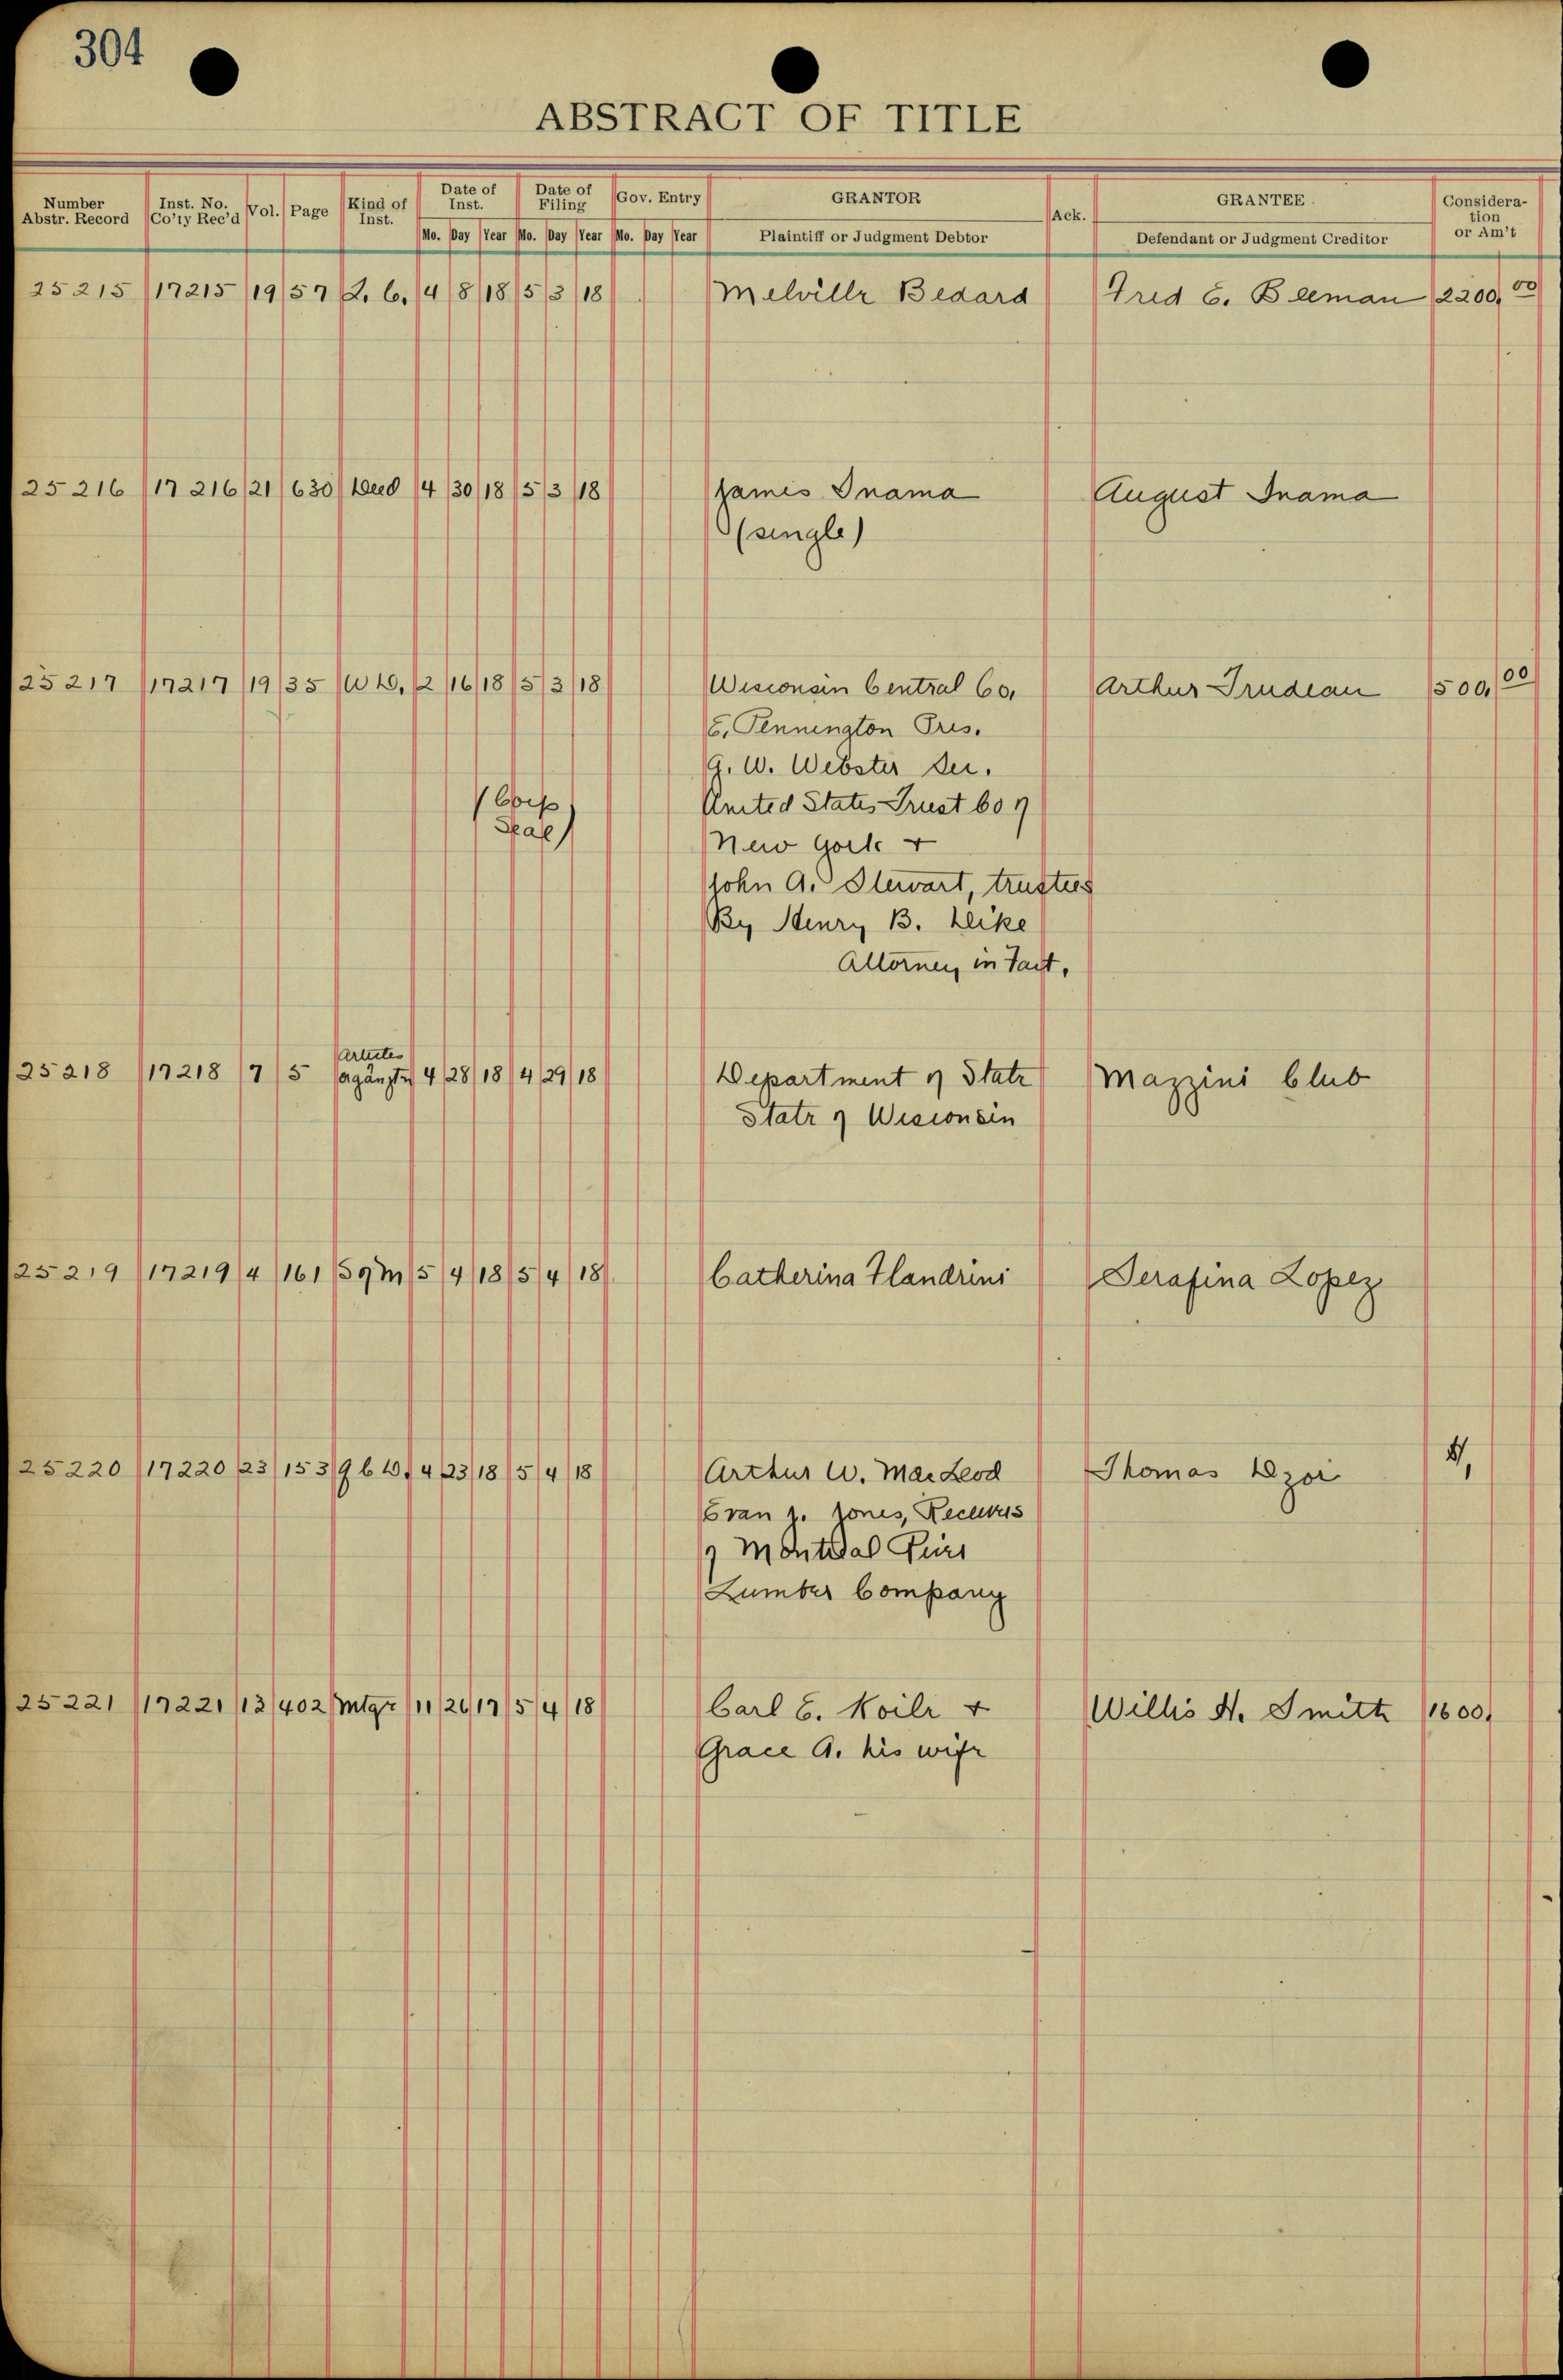 304
ABSTRACT OF TITLE
Number Abstr. Record Inst. No. Co'ty Rec'd Vol. Page Kind of Inst. Date of Inst. Date of Filing Gov. Entry GRANTOR Ack. GRANTEE Consideration or Am't
Mo. Day Year Mo. Day Year Mo. Day Year Plaintiff or Judgment Debtor Defendant or Judgment Creditor
25215 17215 19 57 L. C. 4 8 18 5 3 18 Melville Bedard Fred E. Beeman 2200.00
25216 17216 21 630 Deed 4 30 18 5 3 18 James Inama August Inama
(single)
25217 17217 19 35 W D. 2 16 18 5 3 18 Wisconsin Central Co. Arthur Trudeau 500.00
E. Pennington Pres.
G. W. Webster Sec.
(Corp United States Trust Co of
Seal) New York +
John A. Stewart, trustees
By Henry B.
Attorney in Fact.
Articles
25218 17218 7 5 4 28 18 4 29 18 Department of State Mazzini Club
State of Wisconsin
25219 17219 4 161 5 4 18 5 4 18 Catherina Flandrini Serafina Lopez
25220 17220 23 153 4 23 18 5 4 18 Arthur W. MacLeod Thomas
Evan J. Jones, Receivers
of Montreal River
Lumber Company
25221 17221 13 402 Mtge 11 26 17 5 4 18 Carl E. + Willis H. Smith 1600.
Grace A. his wife